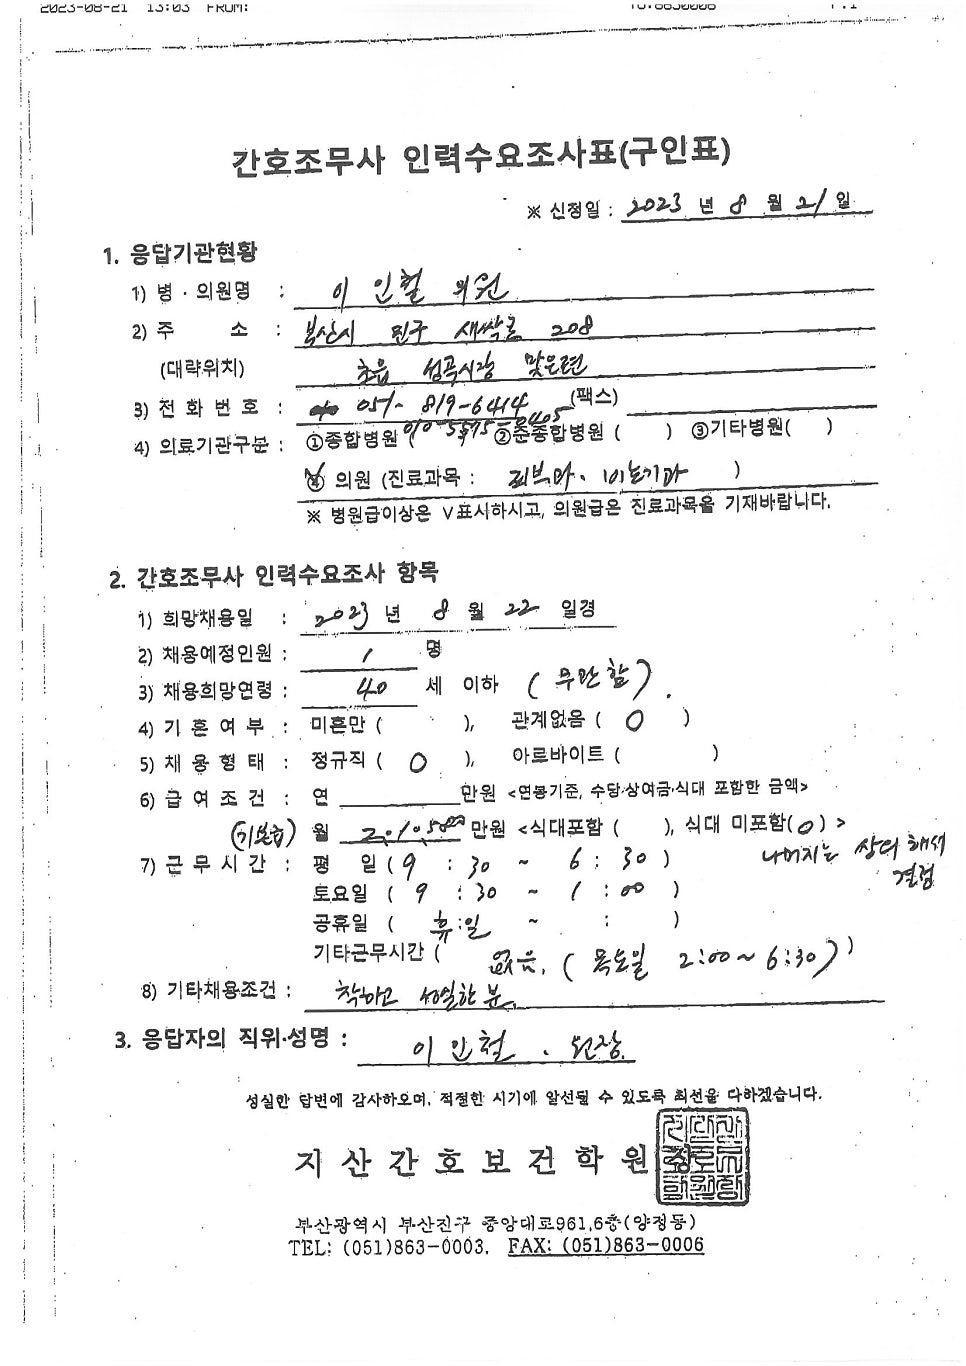 2023-08-21 13:03 FROM: TO:8630006 P.1
간호조무사 인력수요조사표(구인표)
※ 신정일 : 2023 년 8 월 21 일
1. 응답기관현황
1) 병 · 의원명 : 이인철 의원
2) 주 소 : 부산시 진구 새싹로 208
(대략위치) 초읍 성곡시장 맞은편
3) 전 화 번 호 : 051-819-6414 (팩스)
4) 의료기관구분 : ①종합병원 ②준종합병원 ( ) ③기타병원( )
④ 의원 (진료과목 : 피부과. 비뇨기과 )
※ 병원급이상은 V표시하시고, 의원급은 진료과목을 기재바랍니다.
2. 간호조무사 인력수요조사 항목
1) 희망채용일 : 2023 년 8 월 22 일경
2) 채용예정인원 : 1 명
3) 채용희망연령 : 40 세 이하 (무관함).
4) 기 혼 여 부 : 미혼만 ( ), 관계없음 ( O )
5) 채 용 형 태 : 정규직 ( O ), 아르바이트 ( )
6) 급 여 조 건 : 연 만원 <연봉기준, 수당·상여금·식대 포함한 금액>
(기본급) 월 만원 <식대포함 ( ), 식대 미포함(O) >
나머지는 상의해서 결정
7) 근 무 시 간 : 평 일 ( 9 : 30 ~ 6 : 30 )
토요일 ( 9 : 30 ~ 1 : 00 )
공휴일 ( 휴:일 ~ : )
기타근무시간 ( 없음. (목요일 2:00~6:30) )
8) 기타채용조건 : 착하고 성실한 분.
3. 응답자의 직위·성명 : 이인철. 원장
성실한 답변에 감사하오며, 적절한 시기에 알선될 수 있도록 최선을 다하겠습니다.
지 산 간 호 보 건 학 원 장
부산광역시 부산진구 중앙대로961,6층(양정동)
TEL: (051)863-0003, FAX: (051)863-0006